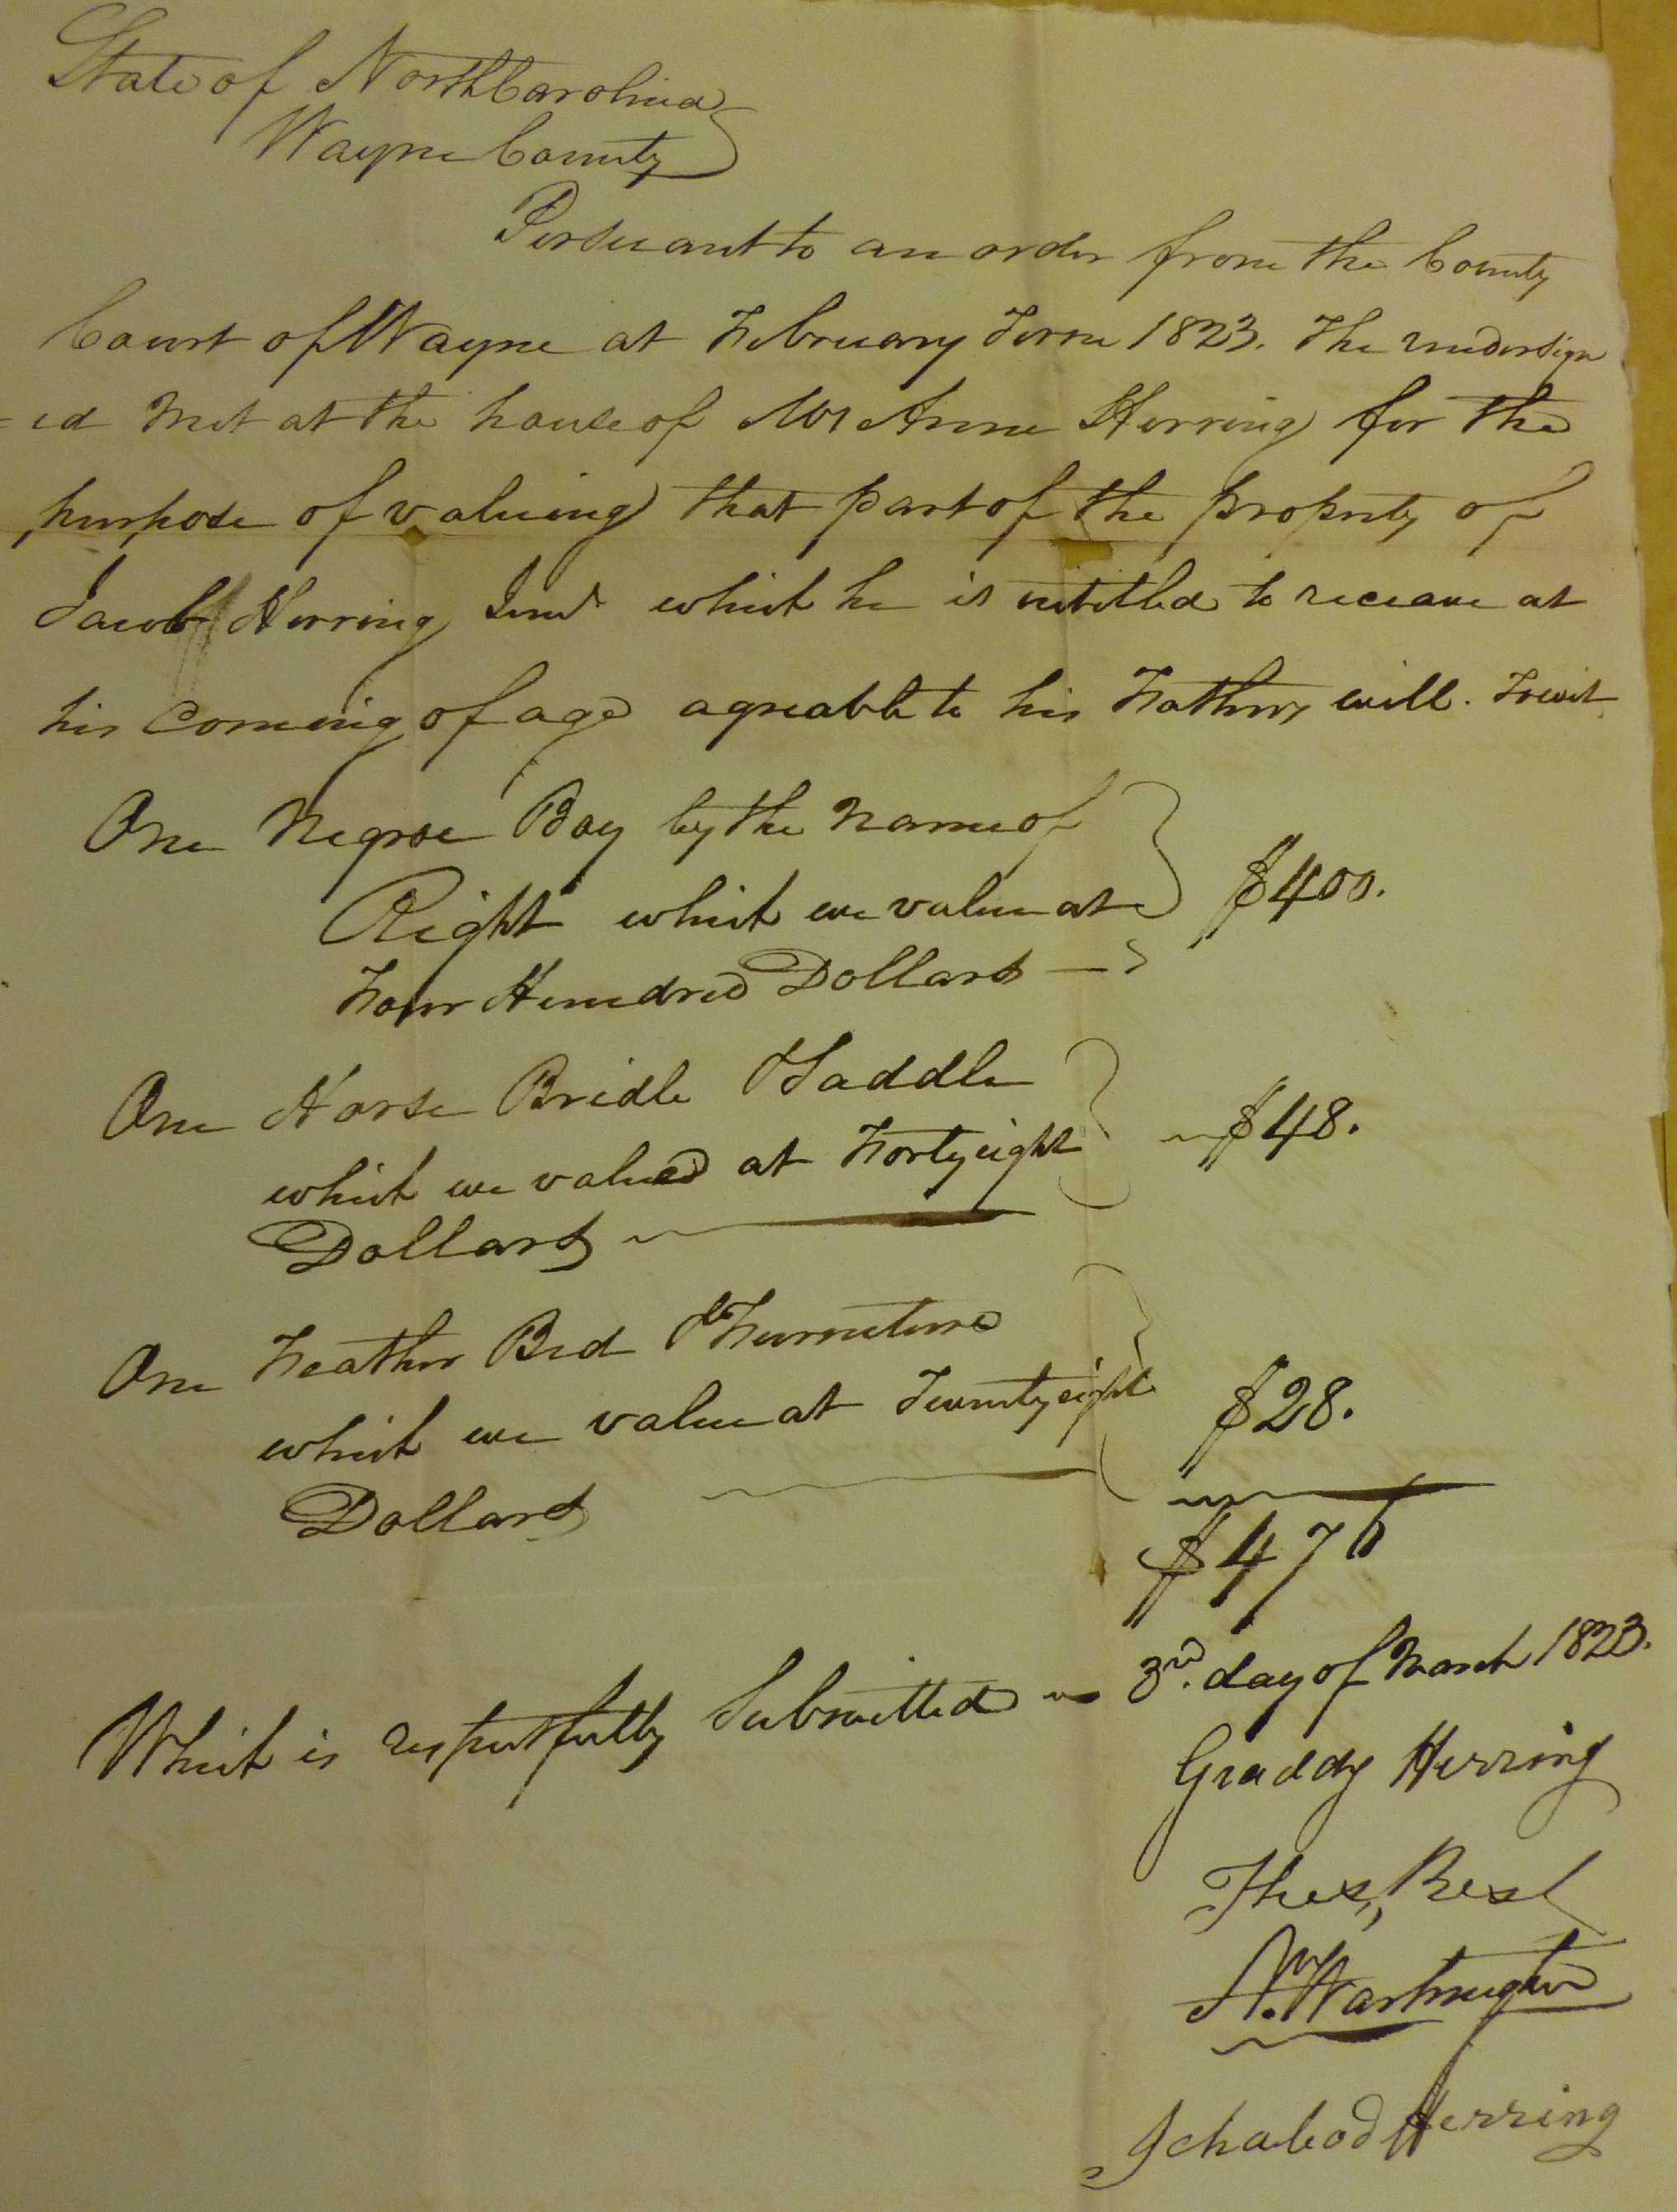 State of North Carolina
Wayne County
Persuant to an order from the County
Court of Wayne at February Term 1823. The undersign
=ed met at the house of Mrs Anne Herring for the
purpose of valuing that part of the property of
Jacob Herring which he is intitled to receave at
his Coming of age agreable to his Fathers will. Towit
One Negroe Boy by the name of
Right which we value at
Four Hundred Dollars — $400.
One Horse Bridle & Saddle
which we valued at Forty eight
Dollars $48.
One Feather Bed & Furniture
which we value at Twenty eight
Dollars $28.
$476
Which is respectfully Submitted 3rd. day of March 1823.
Graddy Herring
Thos, Best
N. Washington
Ichabod Herring